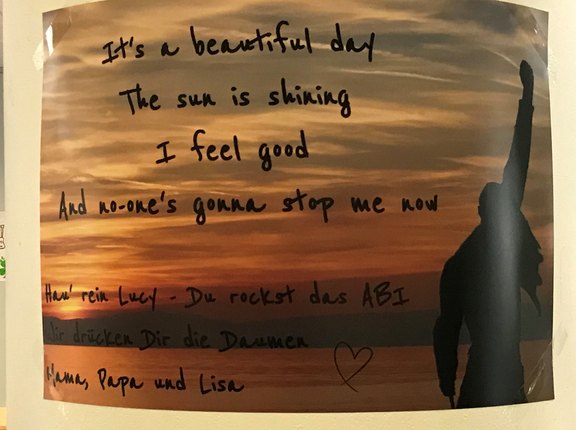 It's a beautiful day
The sun is shining
I feel good
And no-one's gonna stop me now
Hau' rein Lucy - Du rockst das ABI
Wir drücken Dir die Daumen
Mama, Papa und Lisa